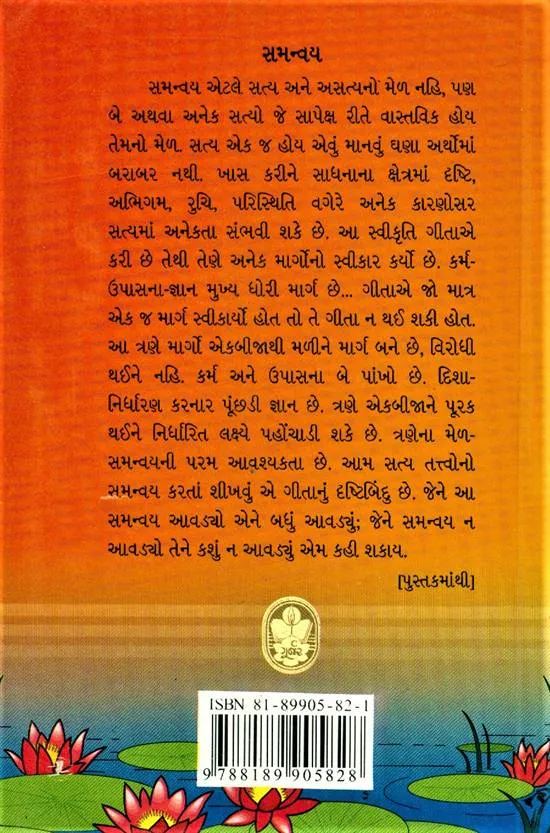 સમન્વય
સમન્વય એટલે સત્ય અને અસત્યનો મેળ નહિ, પણ
બે અથવા અનેક સત્યો જે સાપેક્ષ રીતે વાસ્તવિક હોય
તેમનો મેળ. સત્ય એક જ હોય એવું માનવું ઘણા અર્થોમાં
બરાબર નથી. ખાસ કરીને સાધનાના ક્ષેત્રમાં દૃષ્ટિ,
અભિગમ, રુચિ, પરિસ્થિતિ વગેરે અનેક કારણોસર
સત્યમાં અનેકતા સંભવી શકે છે. આ સ્વીકૃતિ ગીતાએ
કરી છે તેથી તેણે અનેક માર્ગોનો સ્વીકાર કર્યો છે. કર્મ-
ઉપાસના-જ્ઞાન મુખ્ય ધોરી માર્ગ છે... ગીતાએ જો માત્ર
એક જ માર્ગ સ્વીકાર્યો હોત તો તે ગીતા ન થઈ શકી હોત.
આ ત્રણે માર્ગો એકબીજાથી મળીને માર્ગ બને છે, વિરોધી
થઈને નહિ. કર્મ અને ઉપાસના બે પાંખો છે. દિશા-
નિર્ધારણ કરનાર પૂંછડી જ્ઞાન છે. ત્રણે એકબીજાને પૂરક
થઈને નિર્ધારિત લક્ષ્યે પહોંચાડી શકે છે. ત્રણેના મેળ-
સમન્વયની પરમ આવશ્યકતા છે. આમ સત્ય તત્ત્વોનો
સમન્વય કરતાં શીખવું એ ગીતાનું દૃષ્ટિબિંદુ છે. જેને આ
સમન્વય આવડ્યો એને બધું આવડ્યું; જેને સમન્વય ન
આવડ્યો તેને કશું ન આવડ્યું એમ કહી શકાય.
[પુસ્તકમાંથી]
ગૂર્જર
ISBN 81-89905-82-1
9 788189 905828